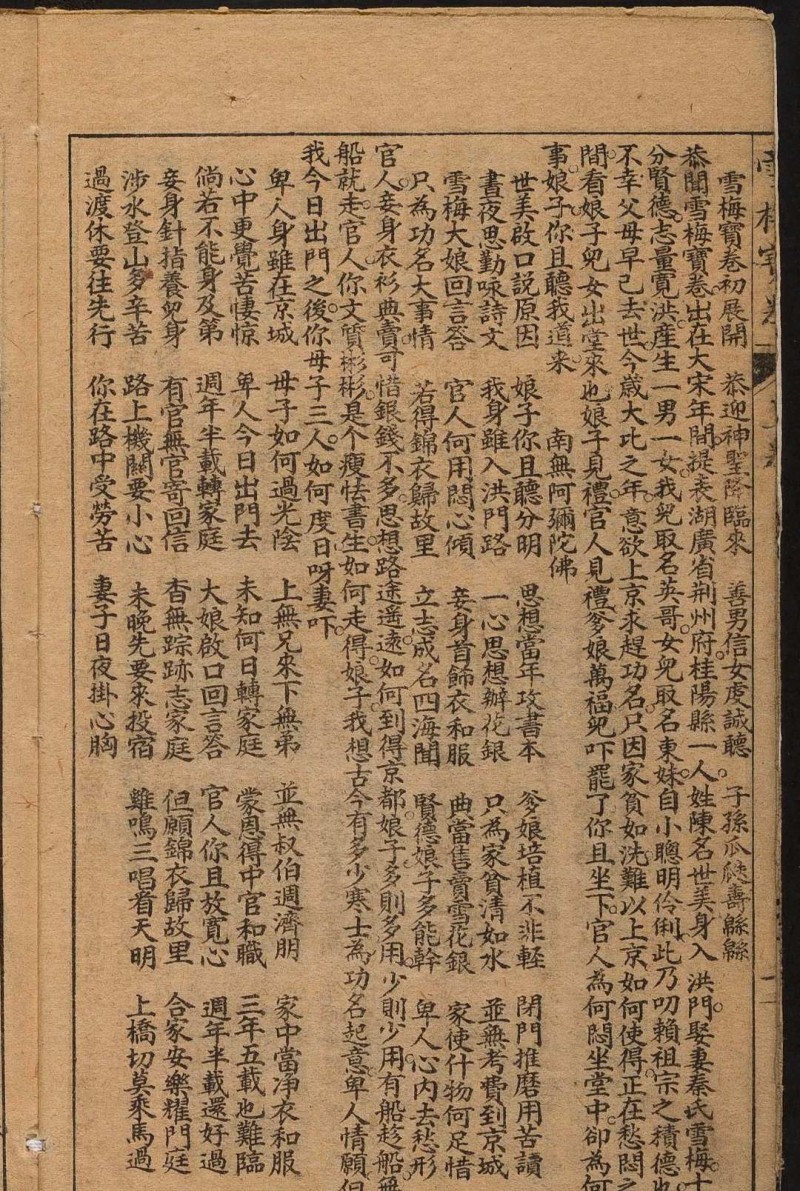 雪梅寶卷初展開 恭迎神聖降臨來 善男信女虔誠聽 子孫瓜瓞壽綿綿
恭聞雪梅寶卷出在大宋年間提表湖廣省荆州府桂陽縣一人姓陳名世美身入洪門娶妻秦氏雪梅十
分賢德志量寬洪產生一男一女我兒取名英哥女兒取名東妹自小聰明伶俐此乃叨賴祖宗之積德也
不幸父母早已去世今歲大比之年意欲上京求趕功名只因家貧如洗難以上京如何使得正在愁悶之
間看娘子兒女出堂來也娘子見禮官人見禮爹娘萬福兒吓罷了你且坐下官人為何悶坐堂中卻為何
事娘子你且聽我道來 南無阿彌陀佛
世美啟口說原因 娘子你且聽分明 思想當年攻書本 爹娘培植不非輕 閉門推磨用苦讀
晝夜思勤咏詩文 我身雖入洪門路 一心思想辦花銀 只為家貧清如水 並無考費到京城
雪梅大娘回言答 官人何用悶心傾 妾身首飾衣和服 曲當售賣雪花銀 家使什物何足惜
只為功名大事情 若得錦衣歸故里 立志成名四海聞 賢德娘子多能幹 卑人心內去愁形
官人妾身衣衫典賣可惜銀錢不多思想路途遥遠如何到得京都娘子多則多用少則少用有船趁船無
船就走官人你文質彬彬是个瘦怯書生如何走得娘子我想古今有多少寒士為功名起意卑人情願但
我今日出門之後你母子三人如何度日呀妻吓
卑人身雖在京城 母子如何過光陰 上無兄來下無弟 並無叔伯週濟朋 家中當净衣和服
心中更覺苦悽惊 卑人今日出門去 未知何日轉家庭 蒙恩得中官和職 三年五載也難臨
倘若不能身及第 週年半載轉家庭 大娘啟口回言答 官人你且放寬心 週年半載還好過
妾身針指養兒身 有官無官寄回信 杳無踪跡志家庭 但願錦衣歸故里 合家安樂耀門庭
涉水登山多辛苦 路上機關要小心 未晚先要來投宿 雞鳴三唱看天明 上橋切莫乘馬過
過渡休要往先行 你在路中受勞苦 妻子日夜掛心胸